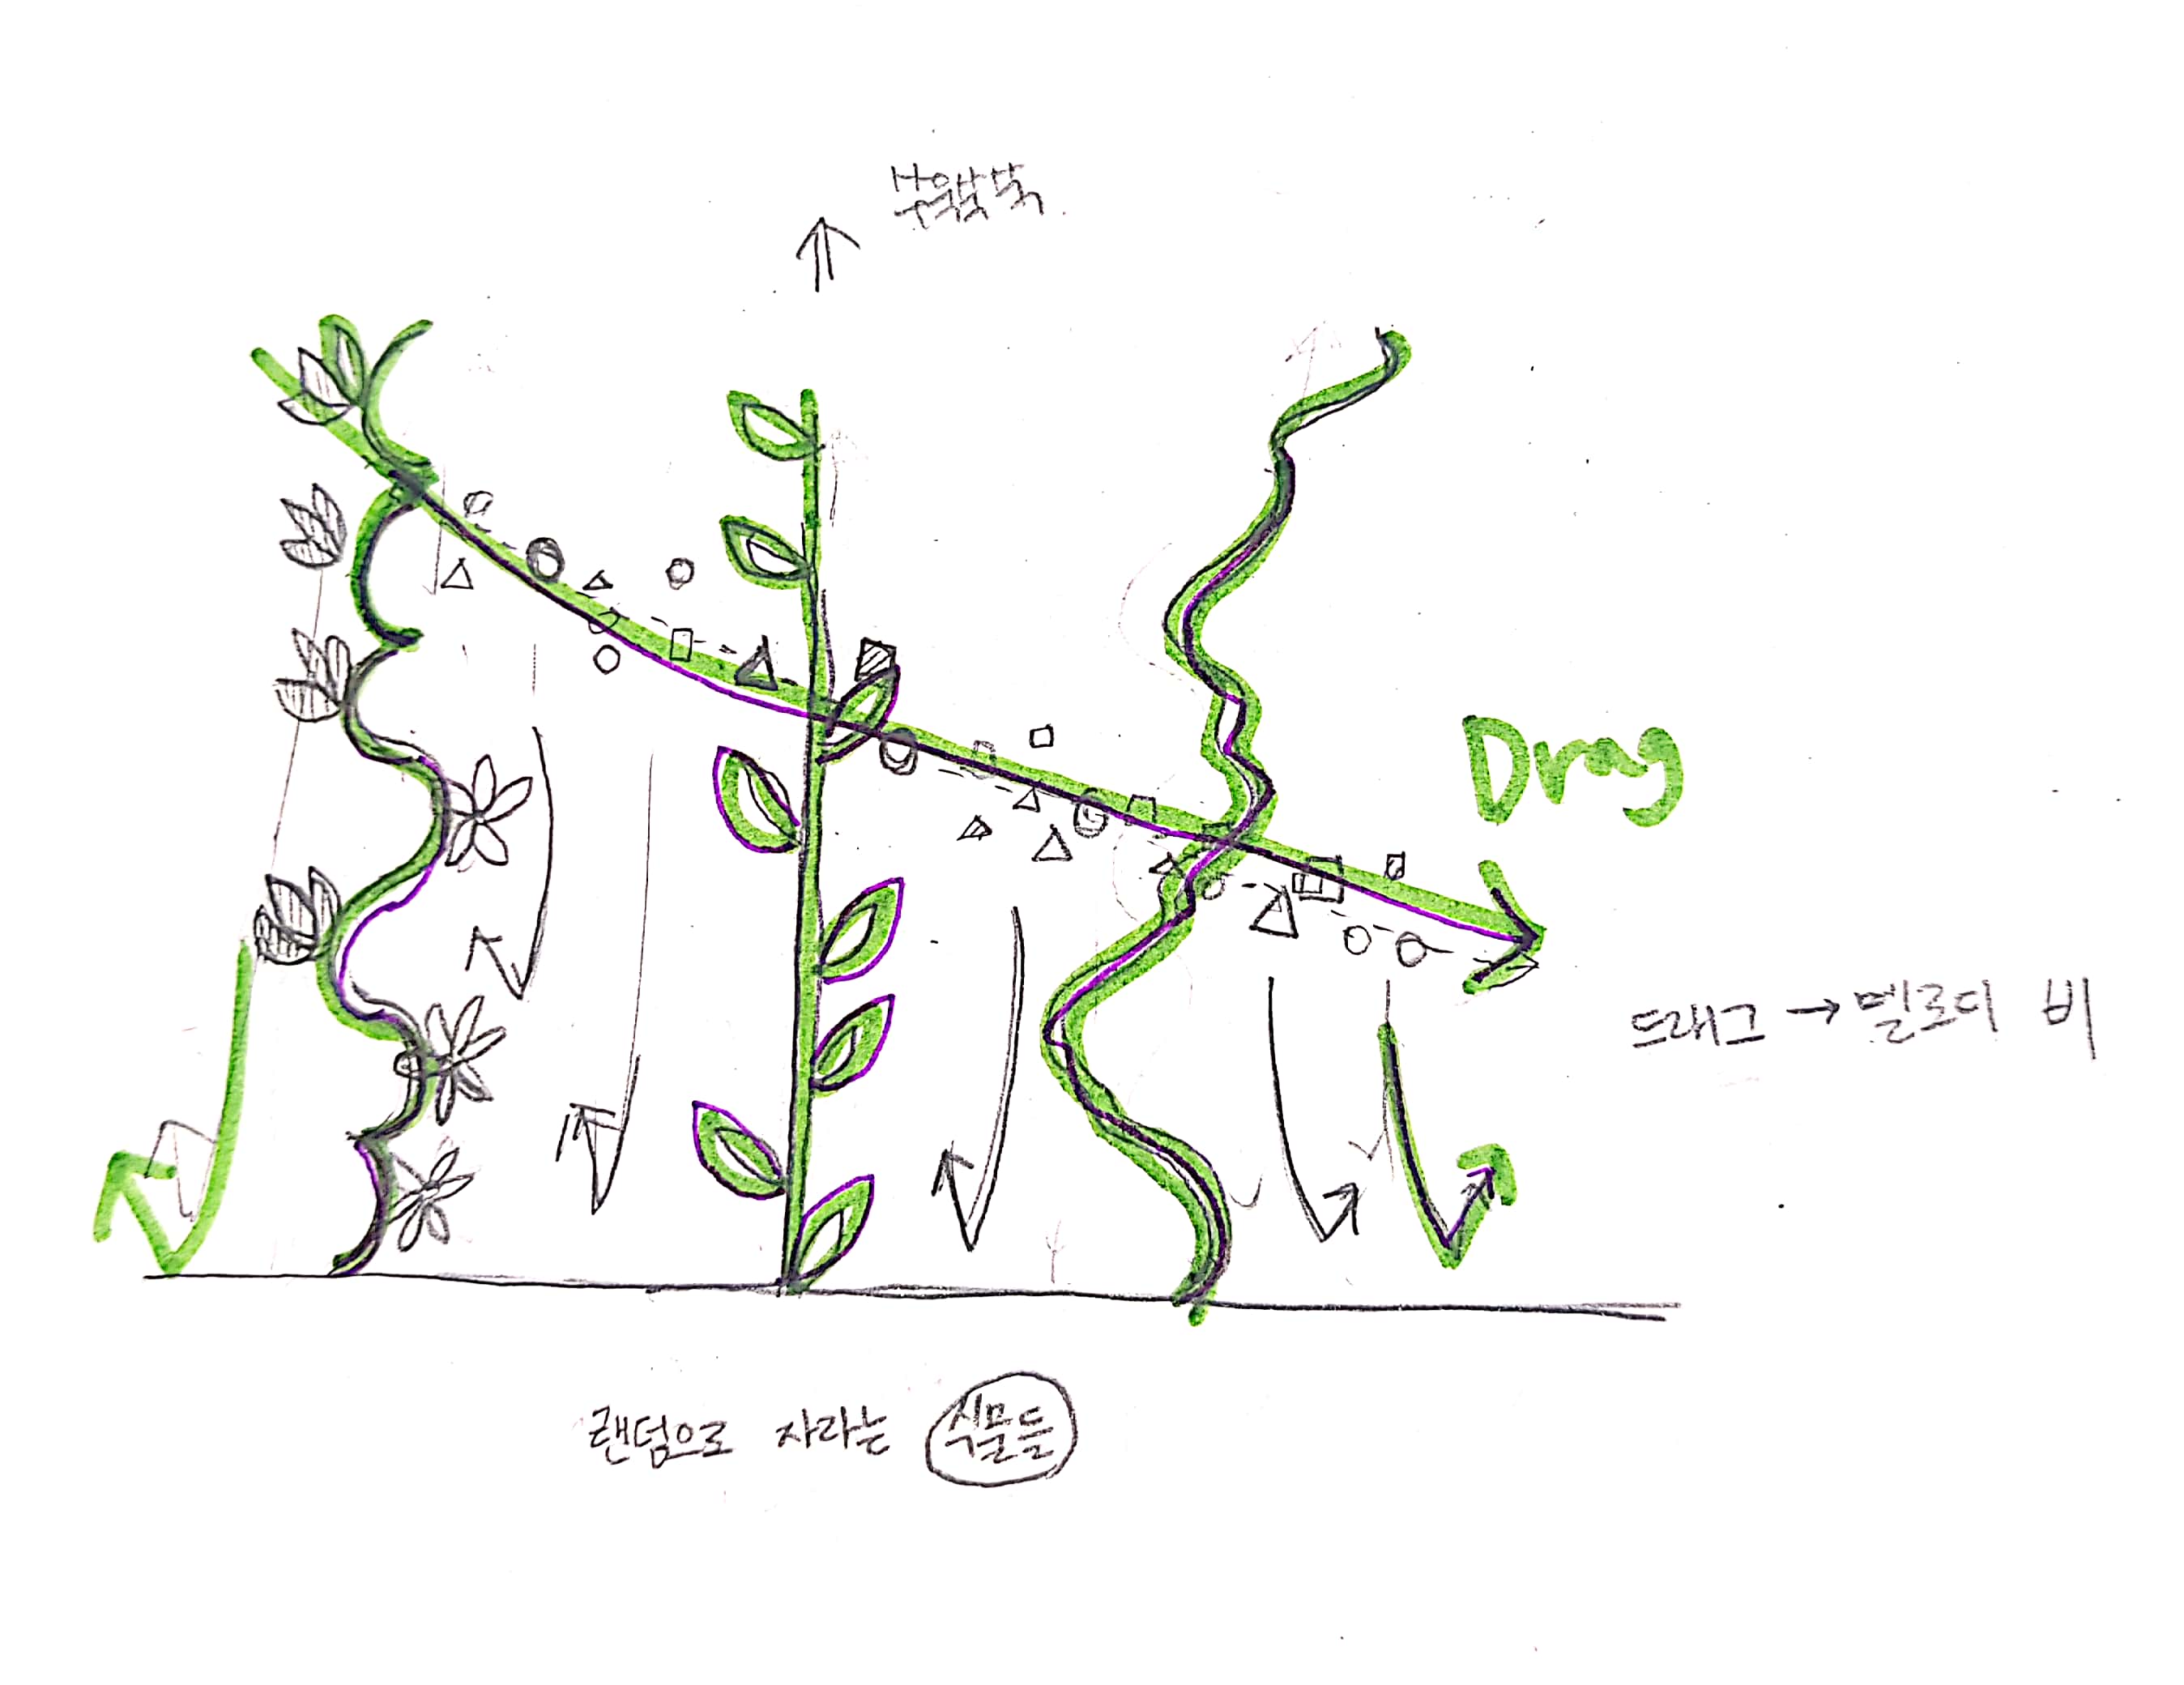 Drag
드래그 → 멜로디 비
랜덤으로 자라는 식물들